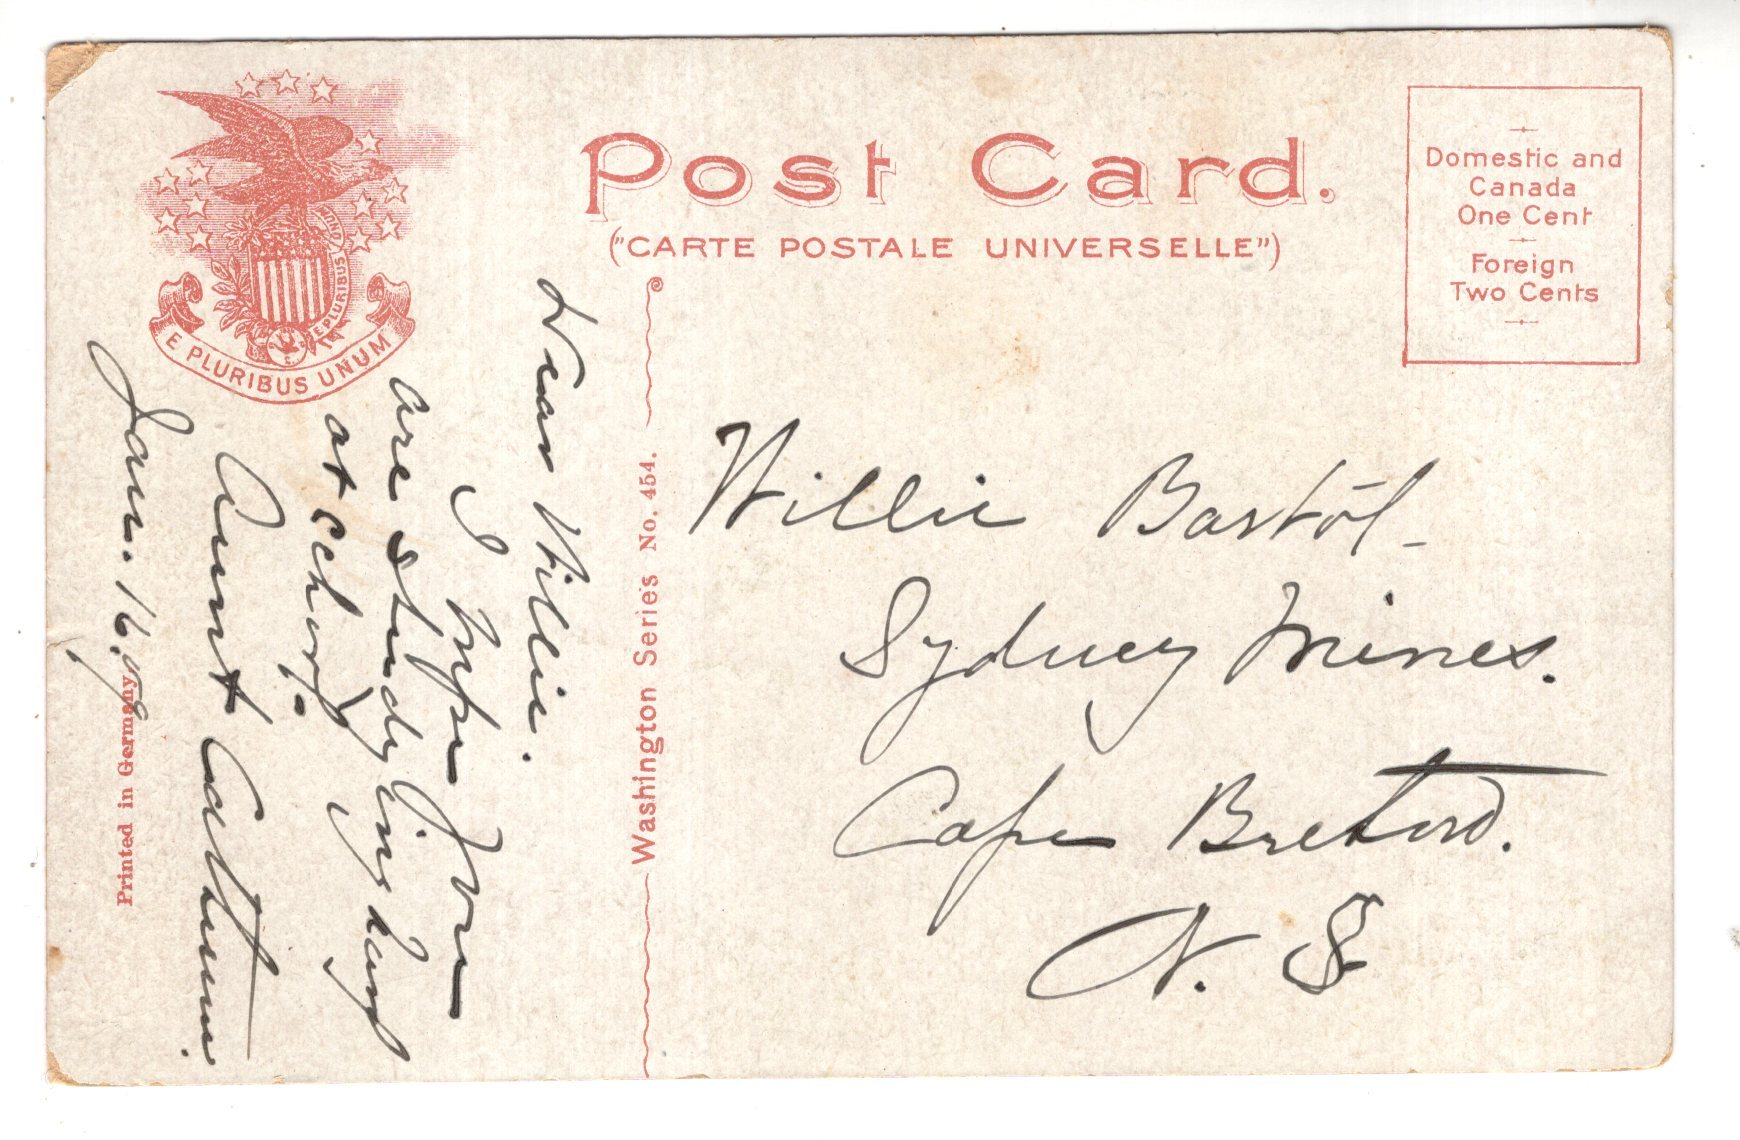 Post Card.
("CARTE POSTALE UNIVERSELLE")
Domestic and
Canada
One Cent
Foreign
Two Cents
E PLURIBUS UNUM
E PLURIBUS UNUM
Dear Willie.
I hope you
are studying hard
at school.
Aunt
Jan. 16, 09
Printed in Germany.
Washington Series No. 454.
Willie
Sydney Mines.
Cape Breton.
N. S